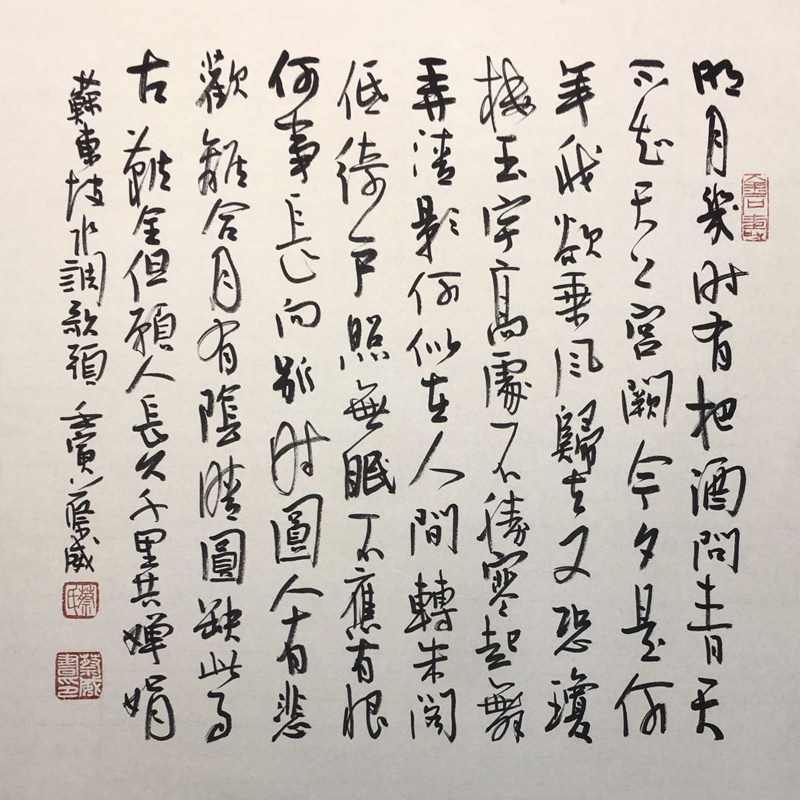 明月幾时有把酒問青天
不知天上宮闕今夕是何
年我欲乘風歸去又恐瓊
樓玉宇高處不勝寒起舞
弄清影何似在人間轉朱閣
低綺户照無眠不應有恨
何事長向別时圓人有悲
歡離合月有陰晴圓缺此事
古難全但願人長久千里共嬋娟
蘇東坡水調歌頭 壬寅 蔡威
蔡氏
蔡威書印